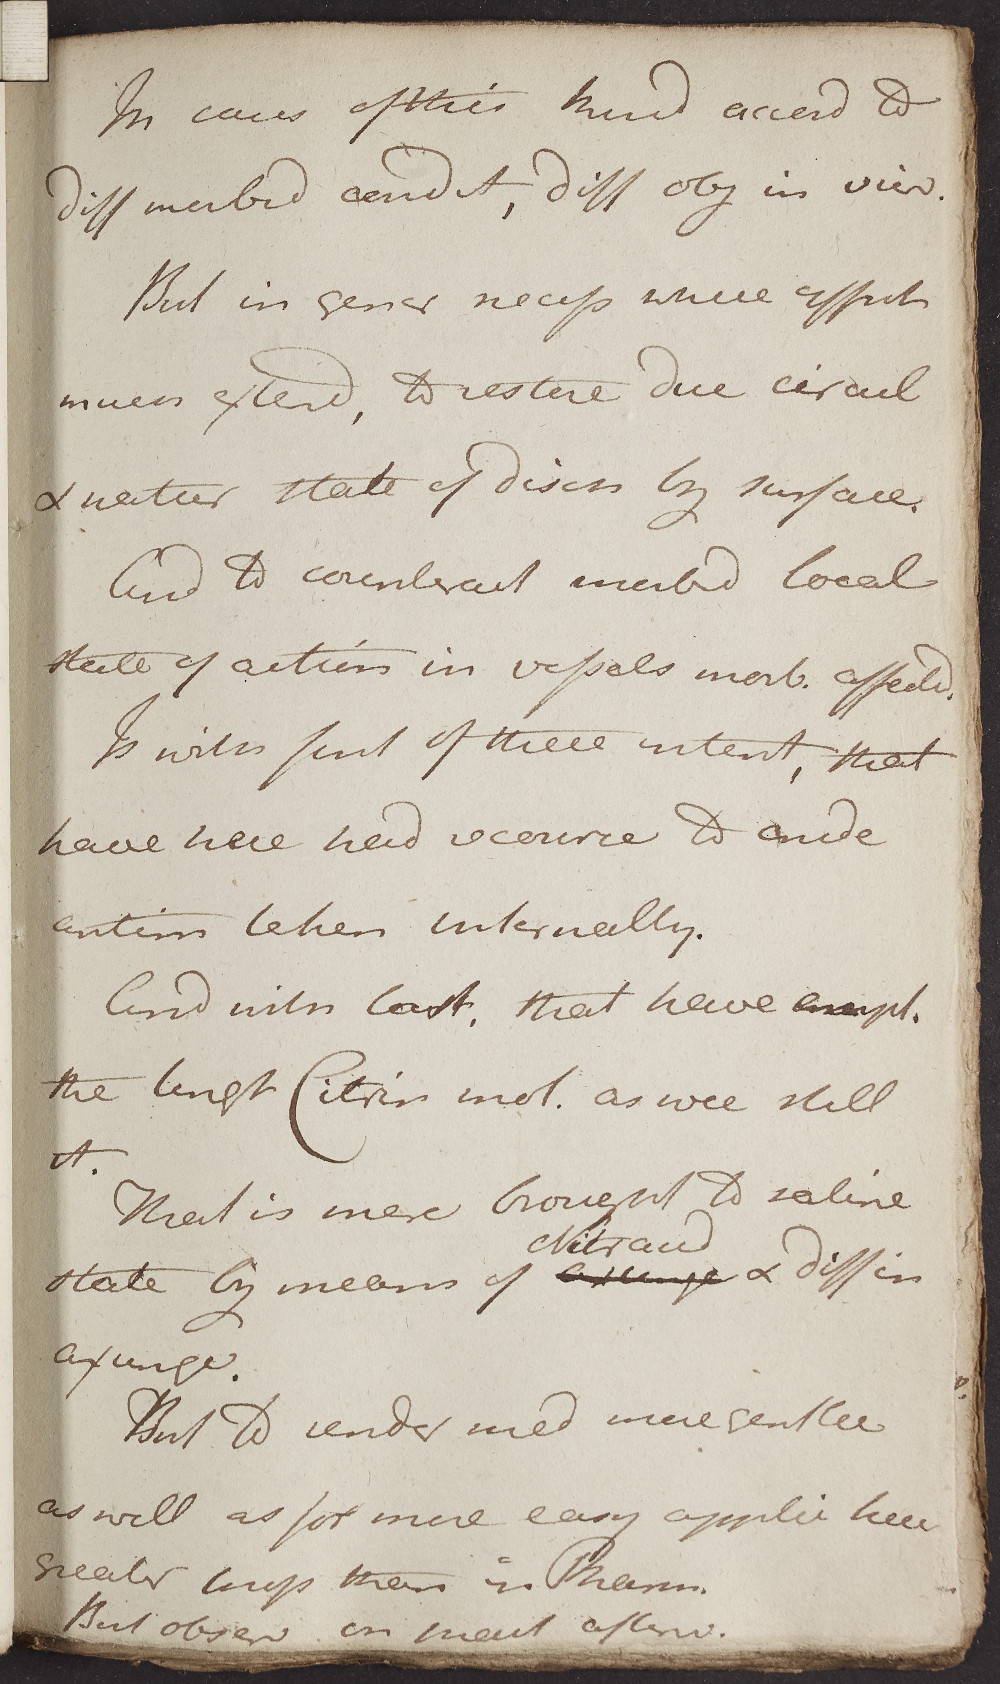 In cases of this kind accord to
diff morbid condit, diff obj in view.
But in gener necess where affect
much extend, to restore due circul
& natur state of disch by surface.
And to counteract morbid local
state of action in vessels morb. affectd.
Is with first of these intent, that
have here had recourse to crude
antim taken internally.
And with last, that have empl.
the Ungt Citrin mol. as we call
it.
That is merc brought to saline
state by means of Nitr acid axunge & diff in
axunge.
But to render med more gentle
as well as for more easy applic here
greater than in Pharm.
But observ on that afterw.